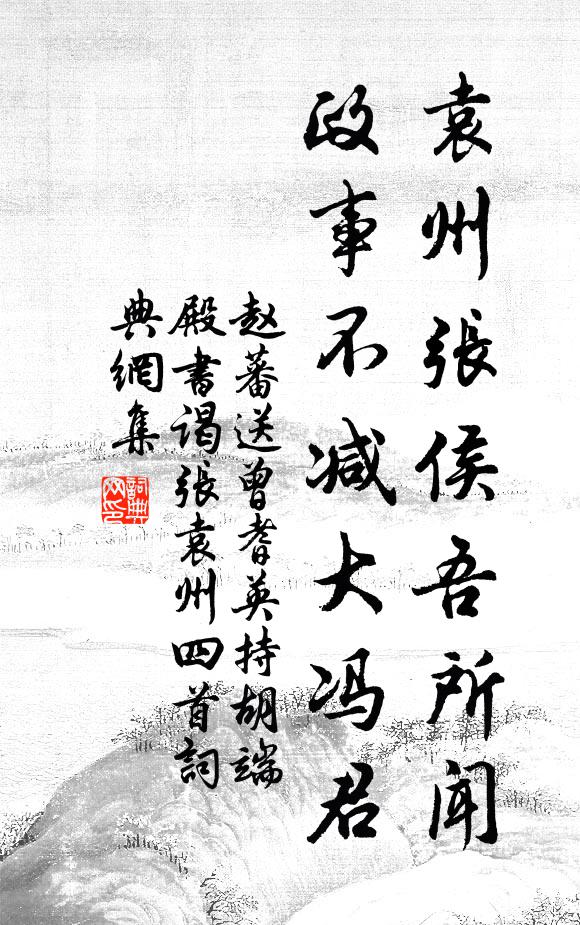 袁州張侯吾所聞
政事不减大冯君
赵蕃送曾耆英持胡端
殿書谒張袁州四首詞
典網集
詞典
网印